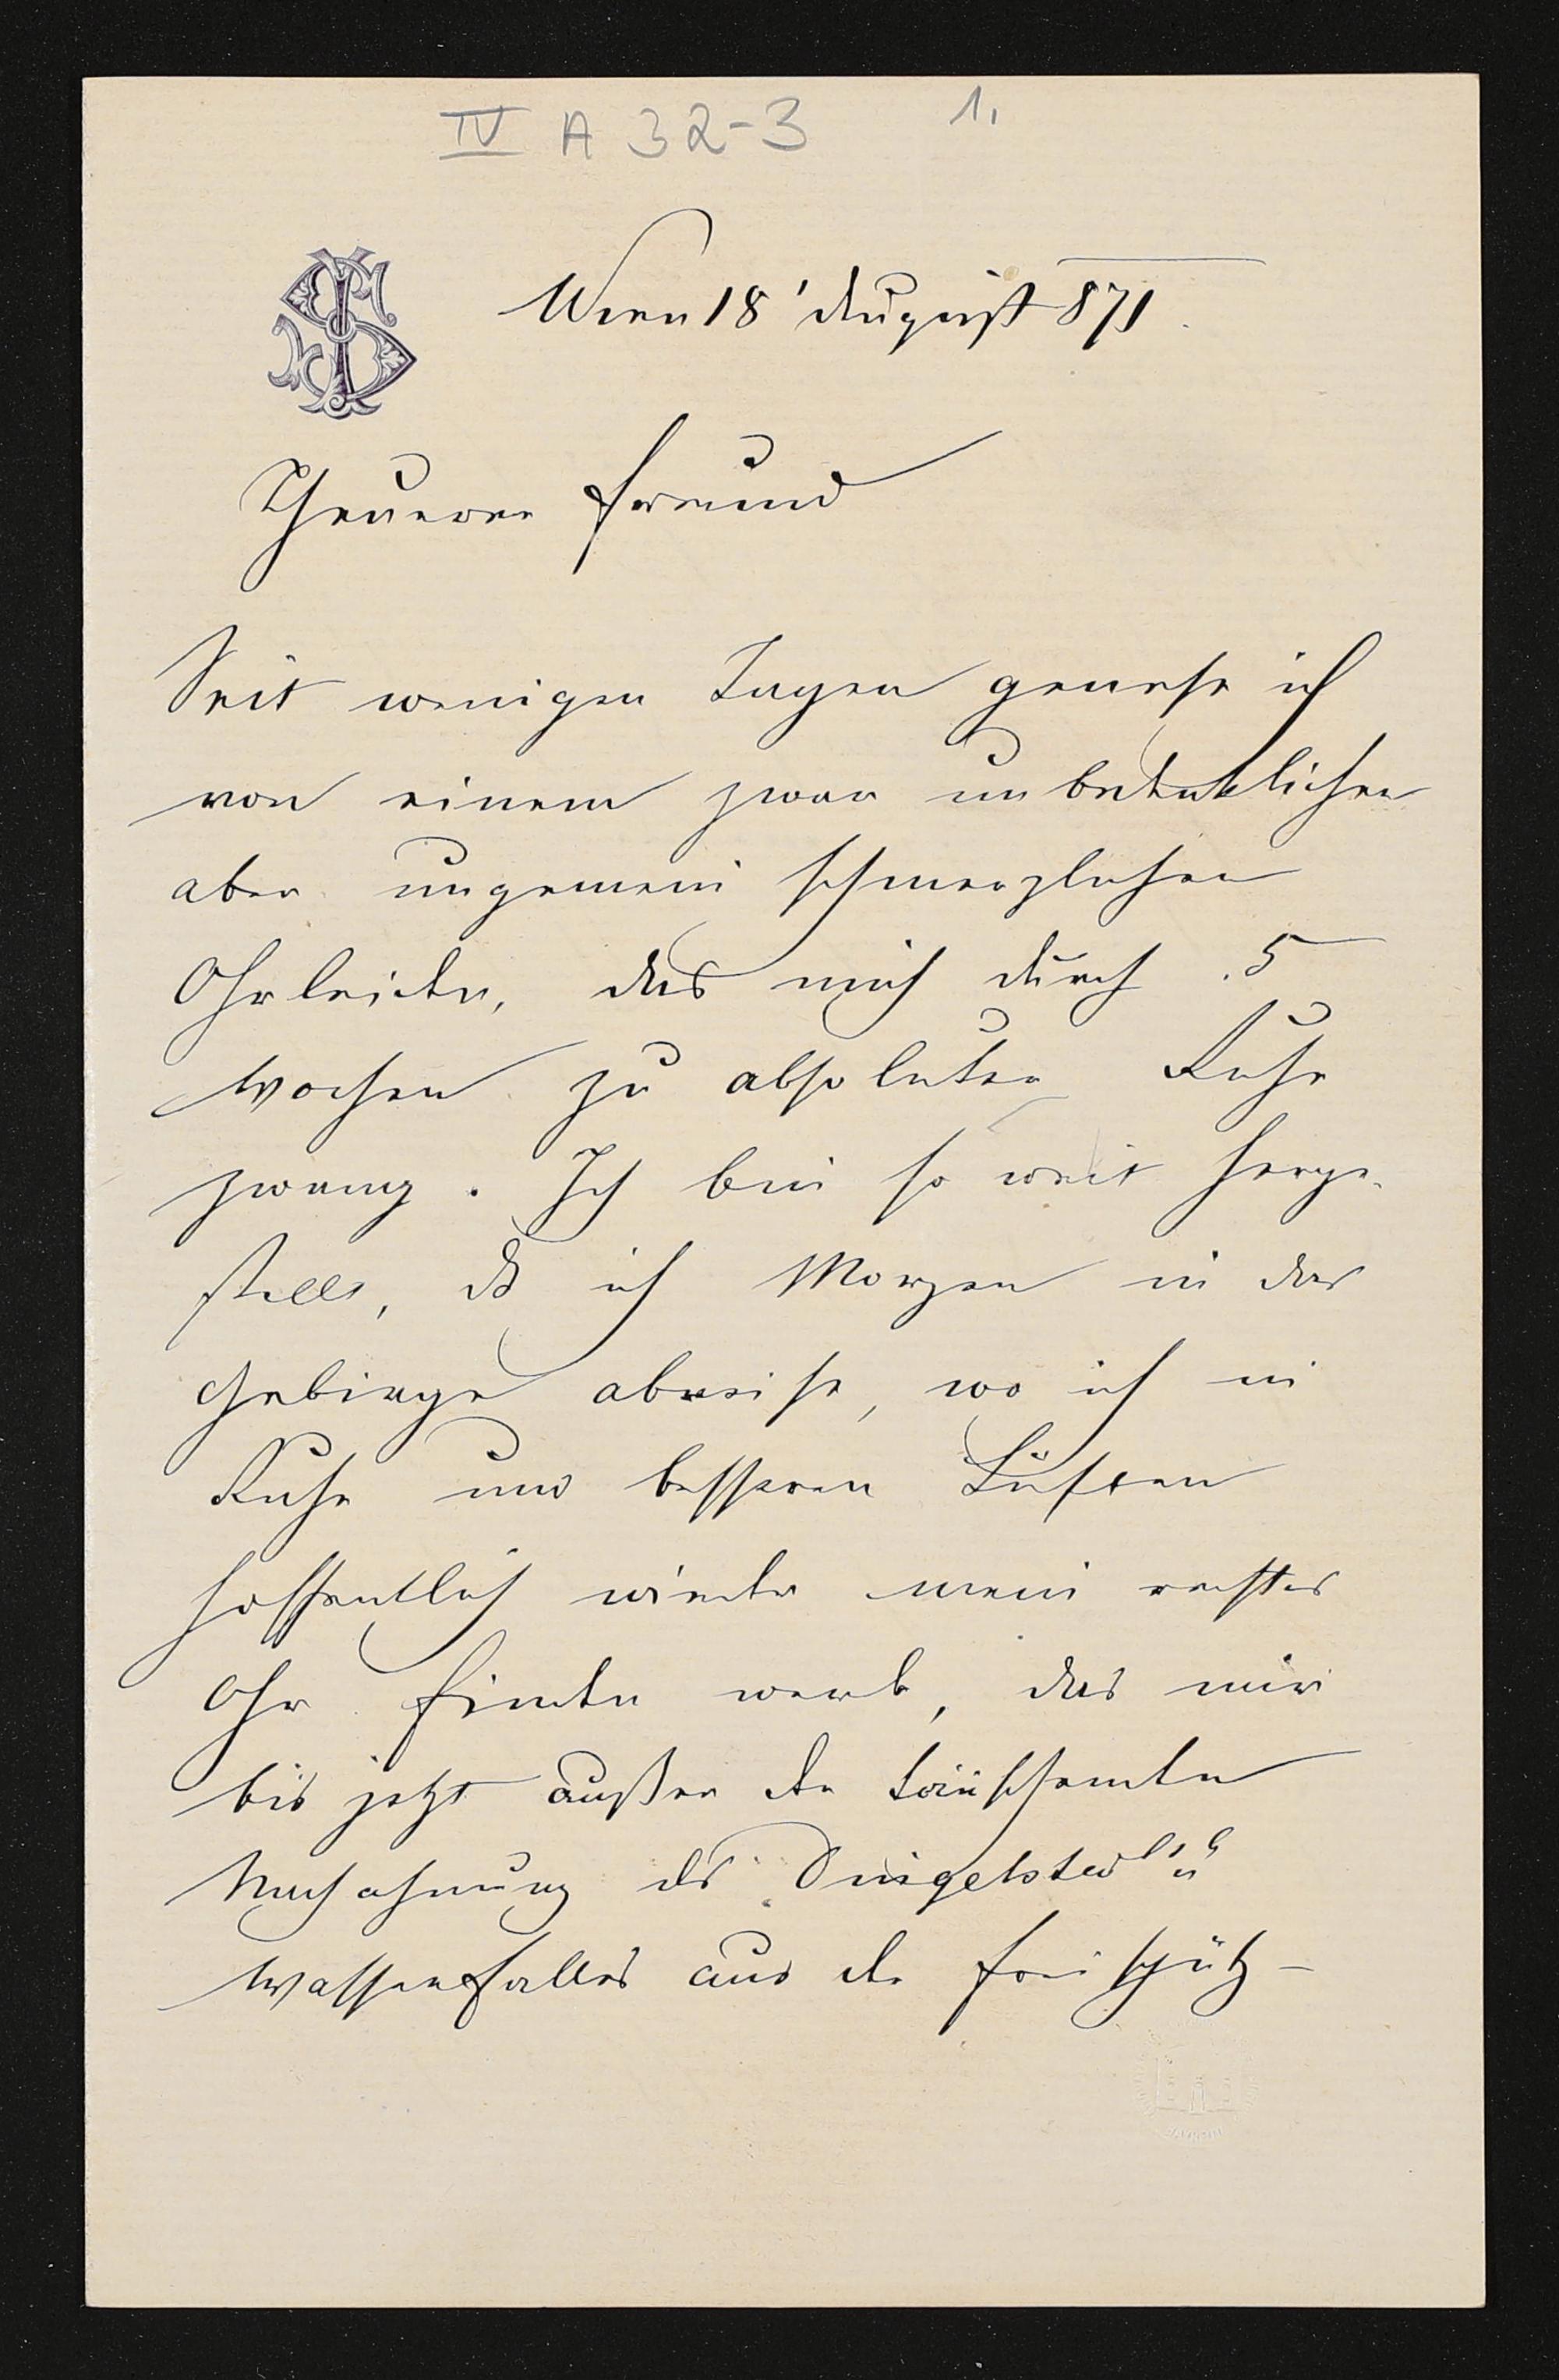 IV A 32-3 1.
Wien 18' August 871.
Theuerer Freund
Seit wenigen Tagen genese ich
von einem zwar unbedenklichen
aber ungemein schmerzlichen
Ohrleiden, das mich durch 5
Wochen zu absoluter Ruhe
zwang. Ich bin so weit herge-
stellt, daß ich Morgen in das
Gebirge abreise, wo ich in
Ruhe und besseren Lüften
hoffentlich wieder mein rechtes
Ohr finden werde, das mir
bis jetzt außer der täuschenden
Nachahmung des Dingelstedt'
Wasserfalles aus der Freischütz-